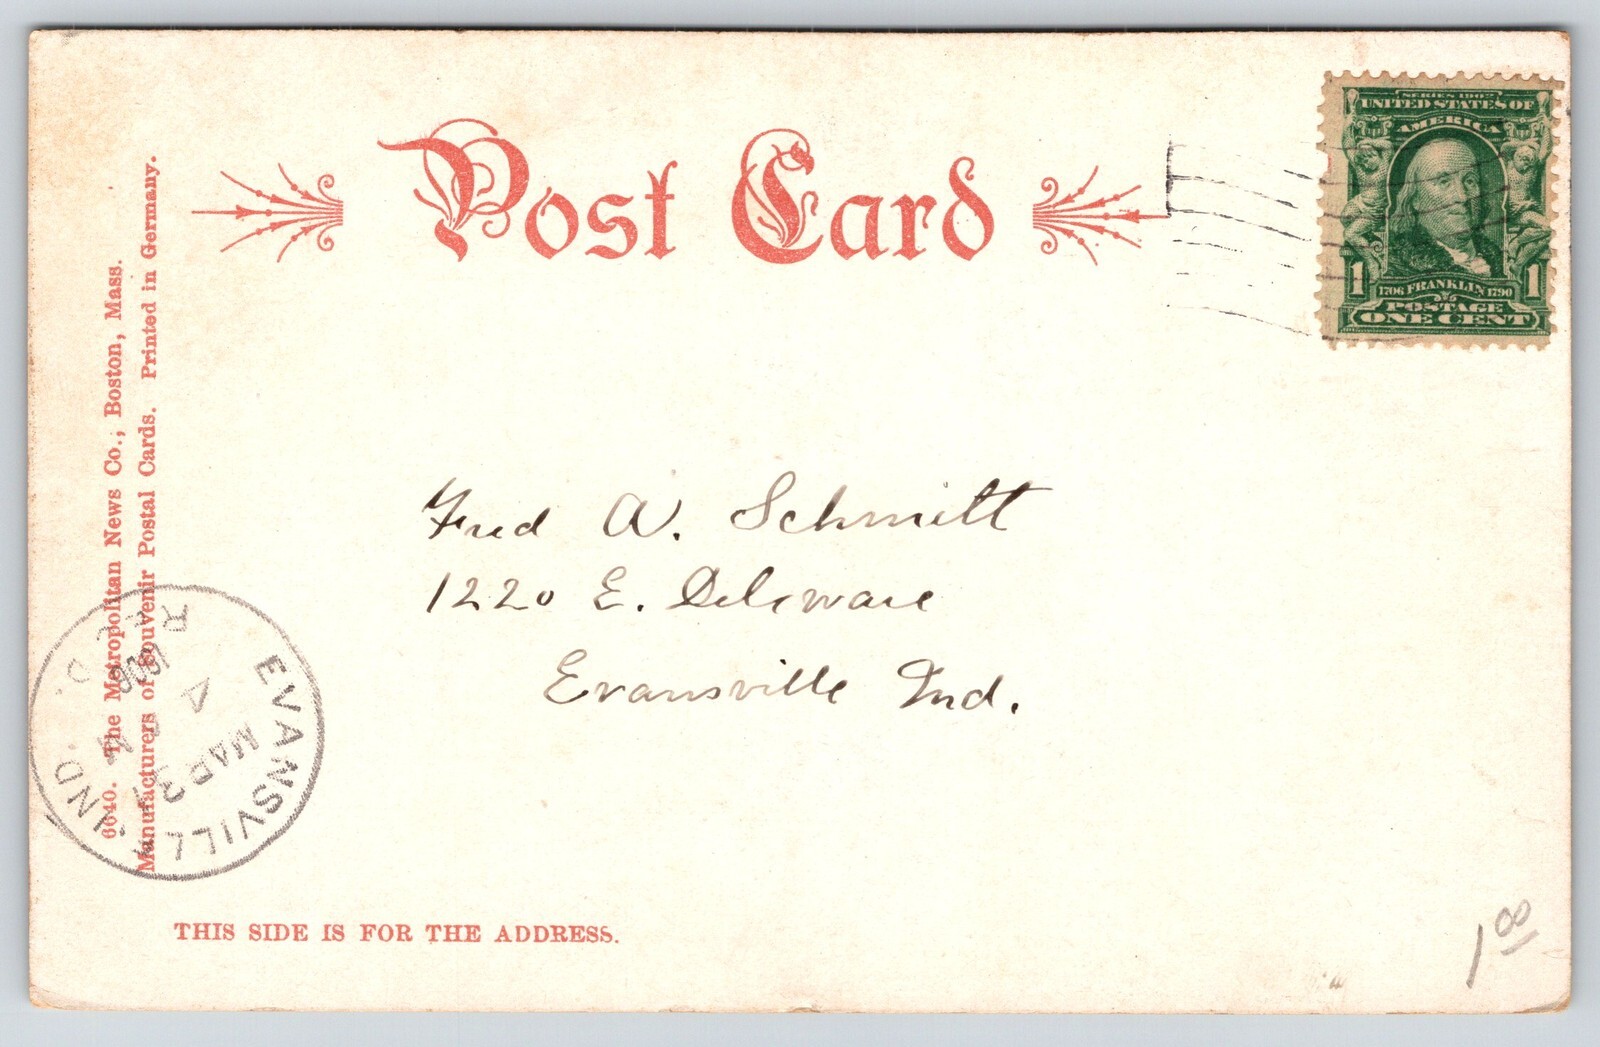 Post Card
SERIES 1902
UNITED STATES OF
AMERICA
1 1
1706 FRANKLIN 1790
POSTAGE
ONE CENT
6040. The Metropolitan News Co., Boston, Mass.
Manufacturers of Souvenir Postal Cards. Printed in Germany.
Fred A. Schmitt
1220 E. Deleware
Evansville Ind.
EVANSVILL IND.
MAR 31
1906
REC'D.
THIS SIDE IS FOR THE ADDRESS.
1 00